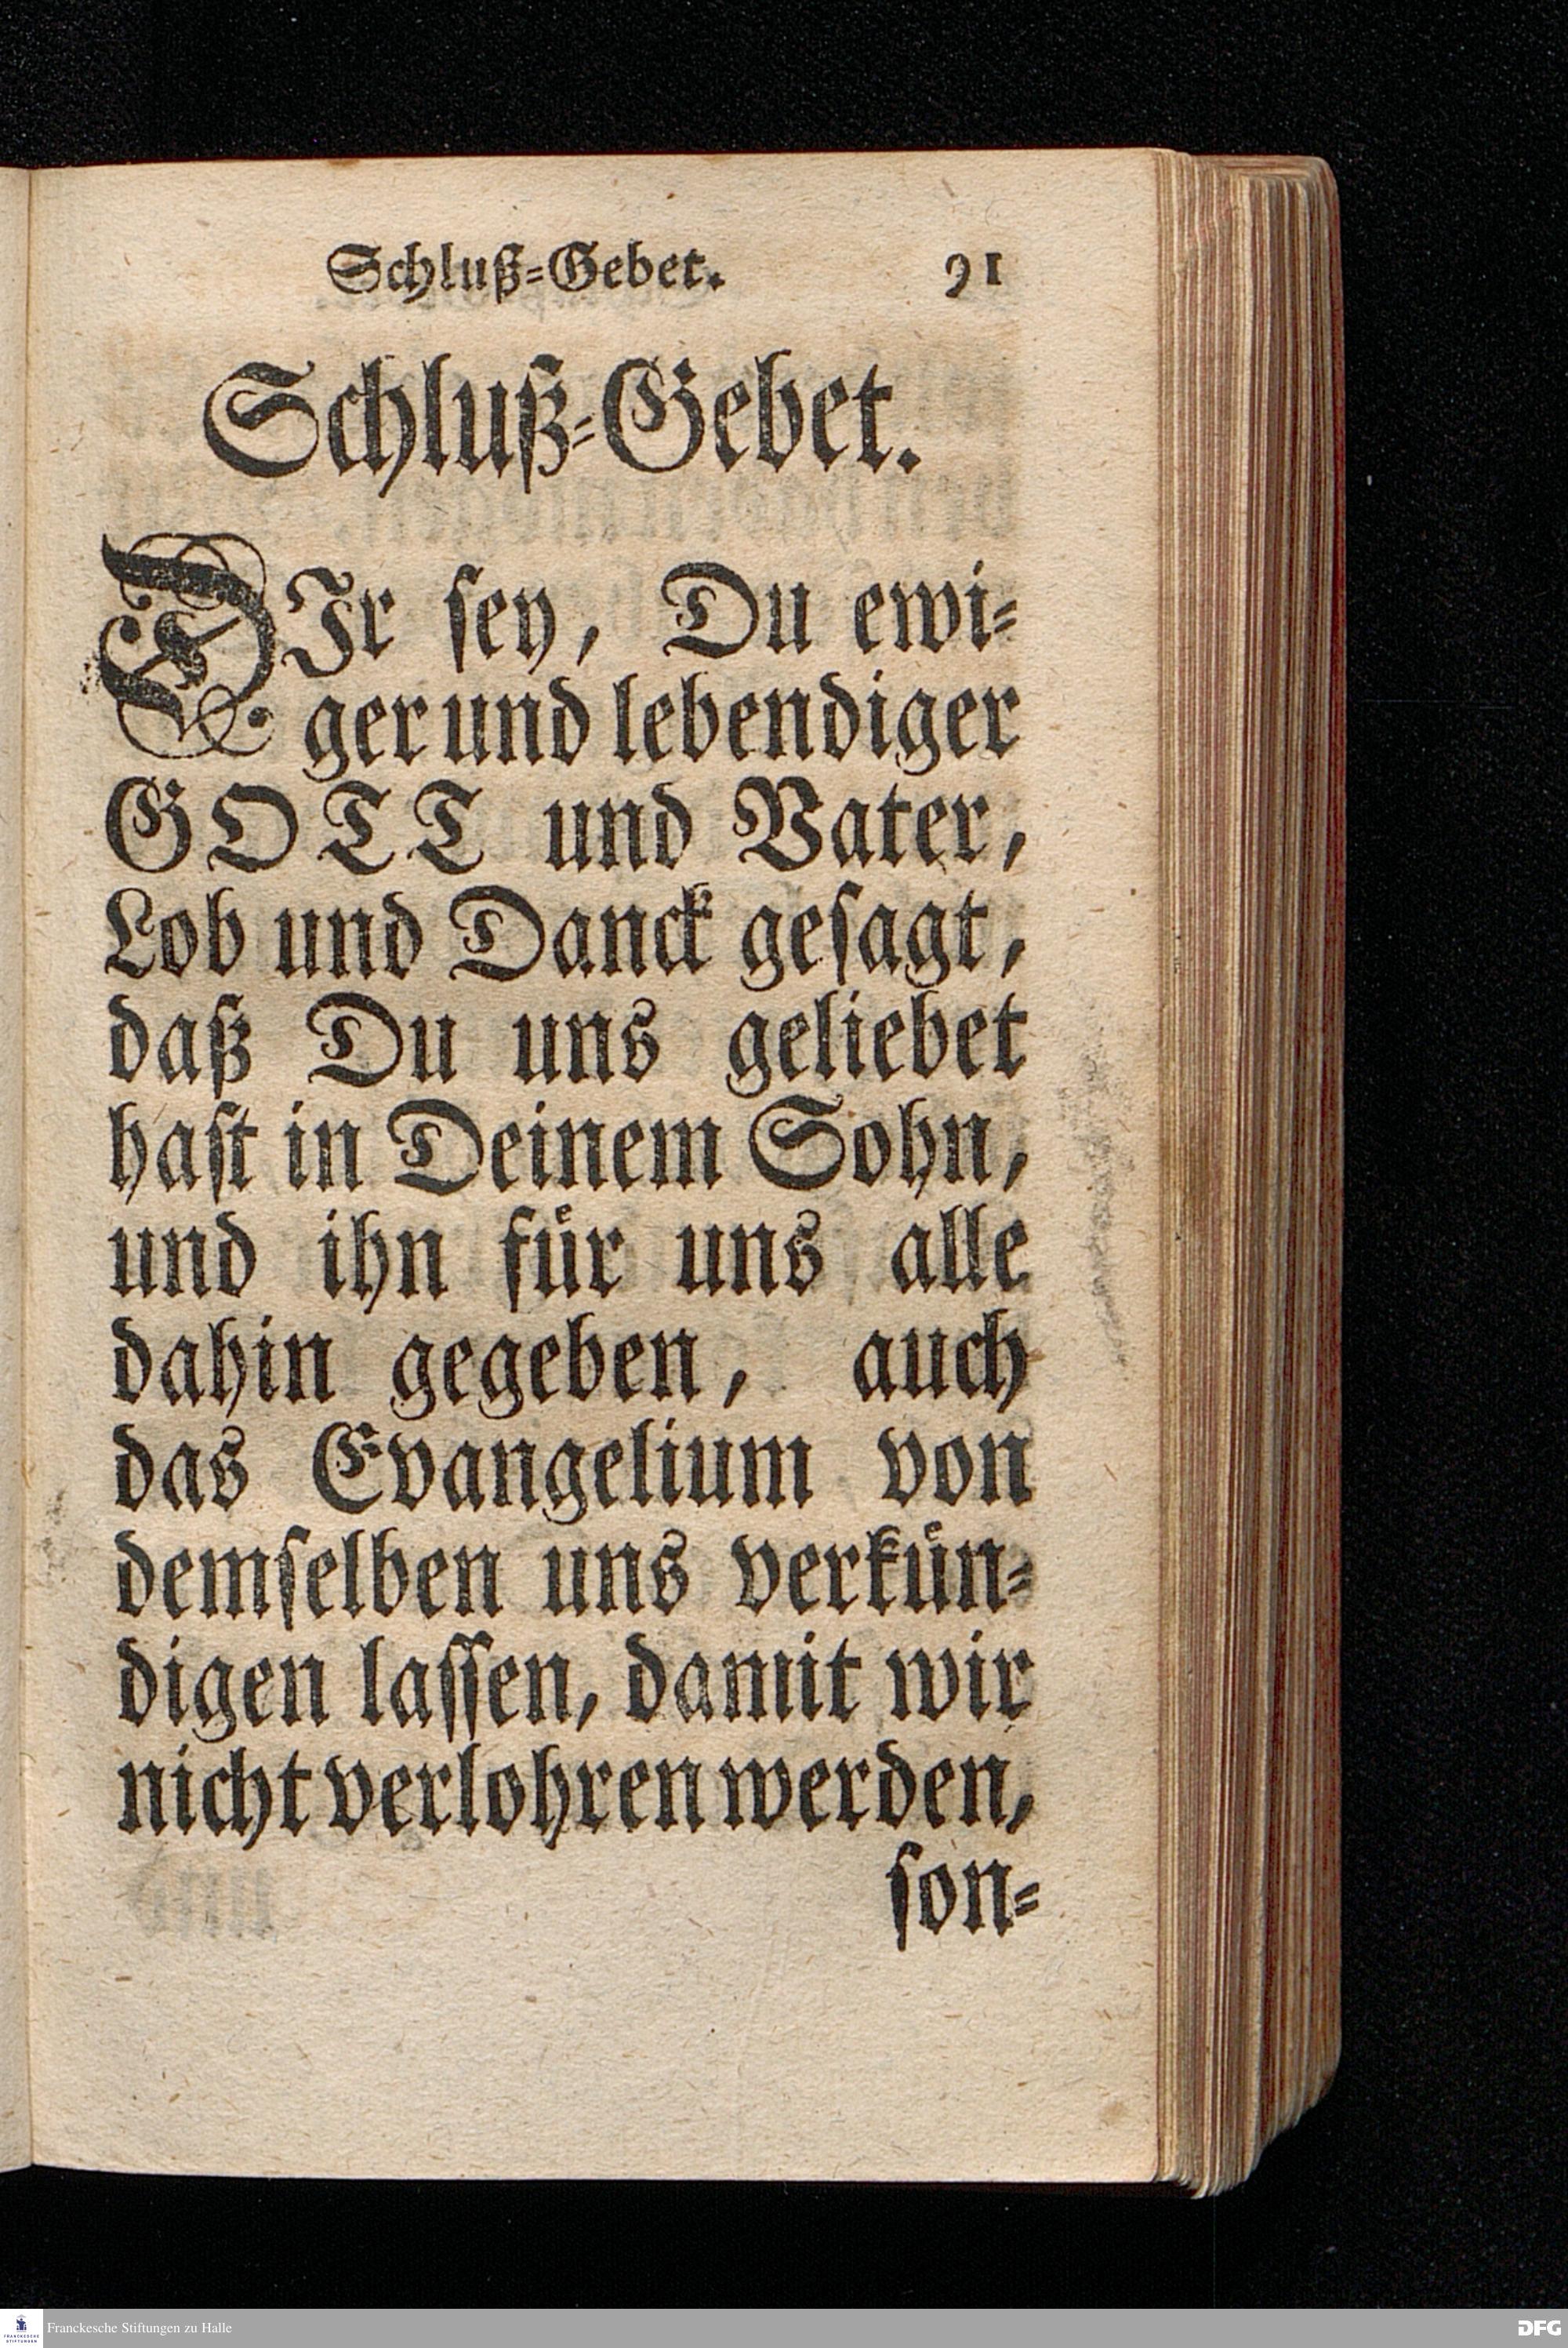 Schluß-Gebet. 91
Schluß-Gebet.
DIr sey, Du ewi-
ger und lebendiger
GOTT und Vater,
Lob und Danck gesagt,
daß Du uns geliebet
hast in Deinem Sohn,
und ihn für uns alle
dahin gegeben, auch
das Evangelium von
demselben uns verkün-
digen lassen, damit wir
nicht verlohren werden,
son-
FRANCKESCHE
STIFTUNGEN
Franckesche Stiftungen zu Halle
DFG